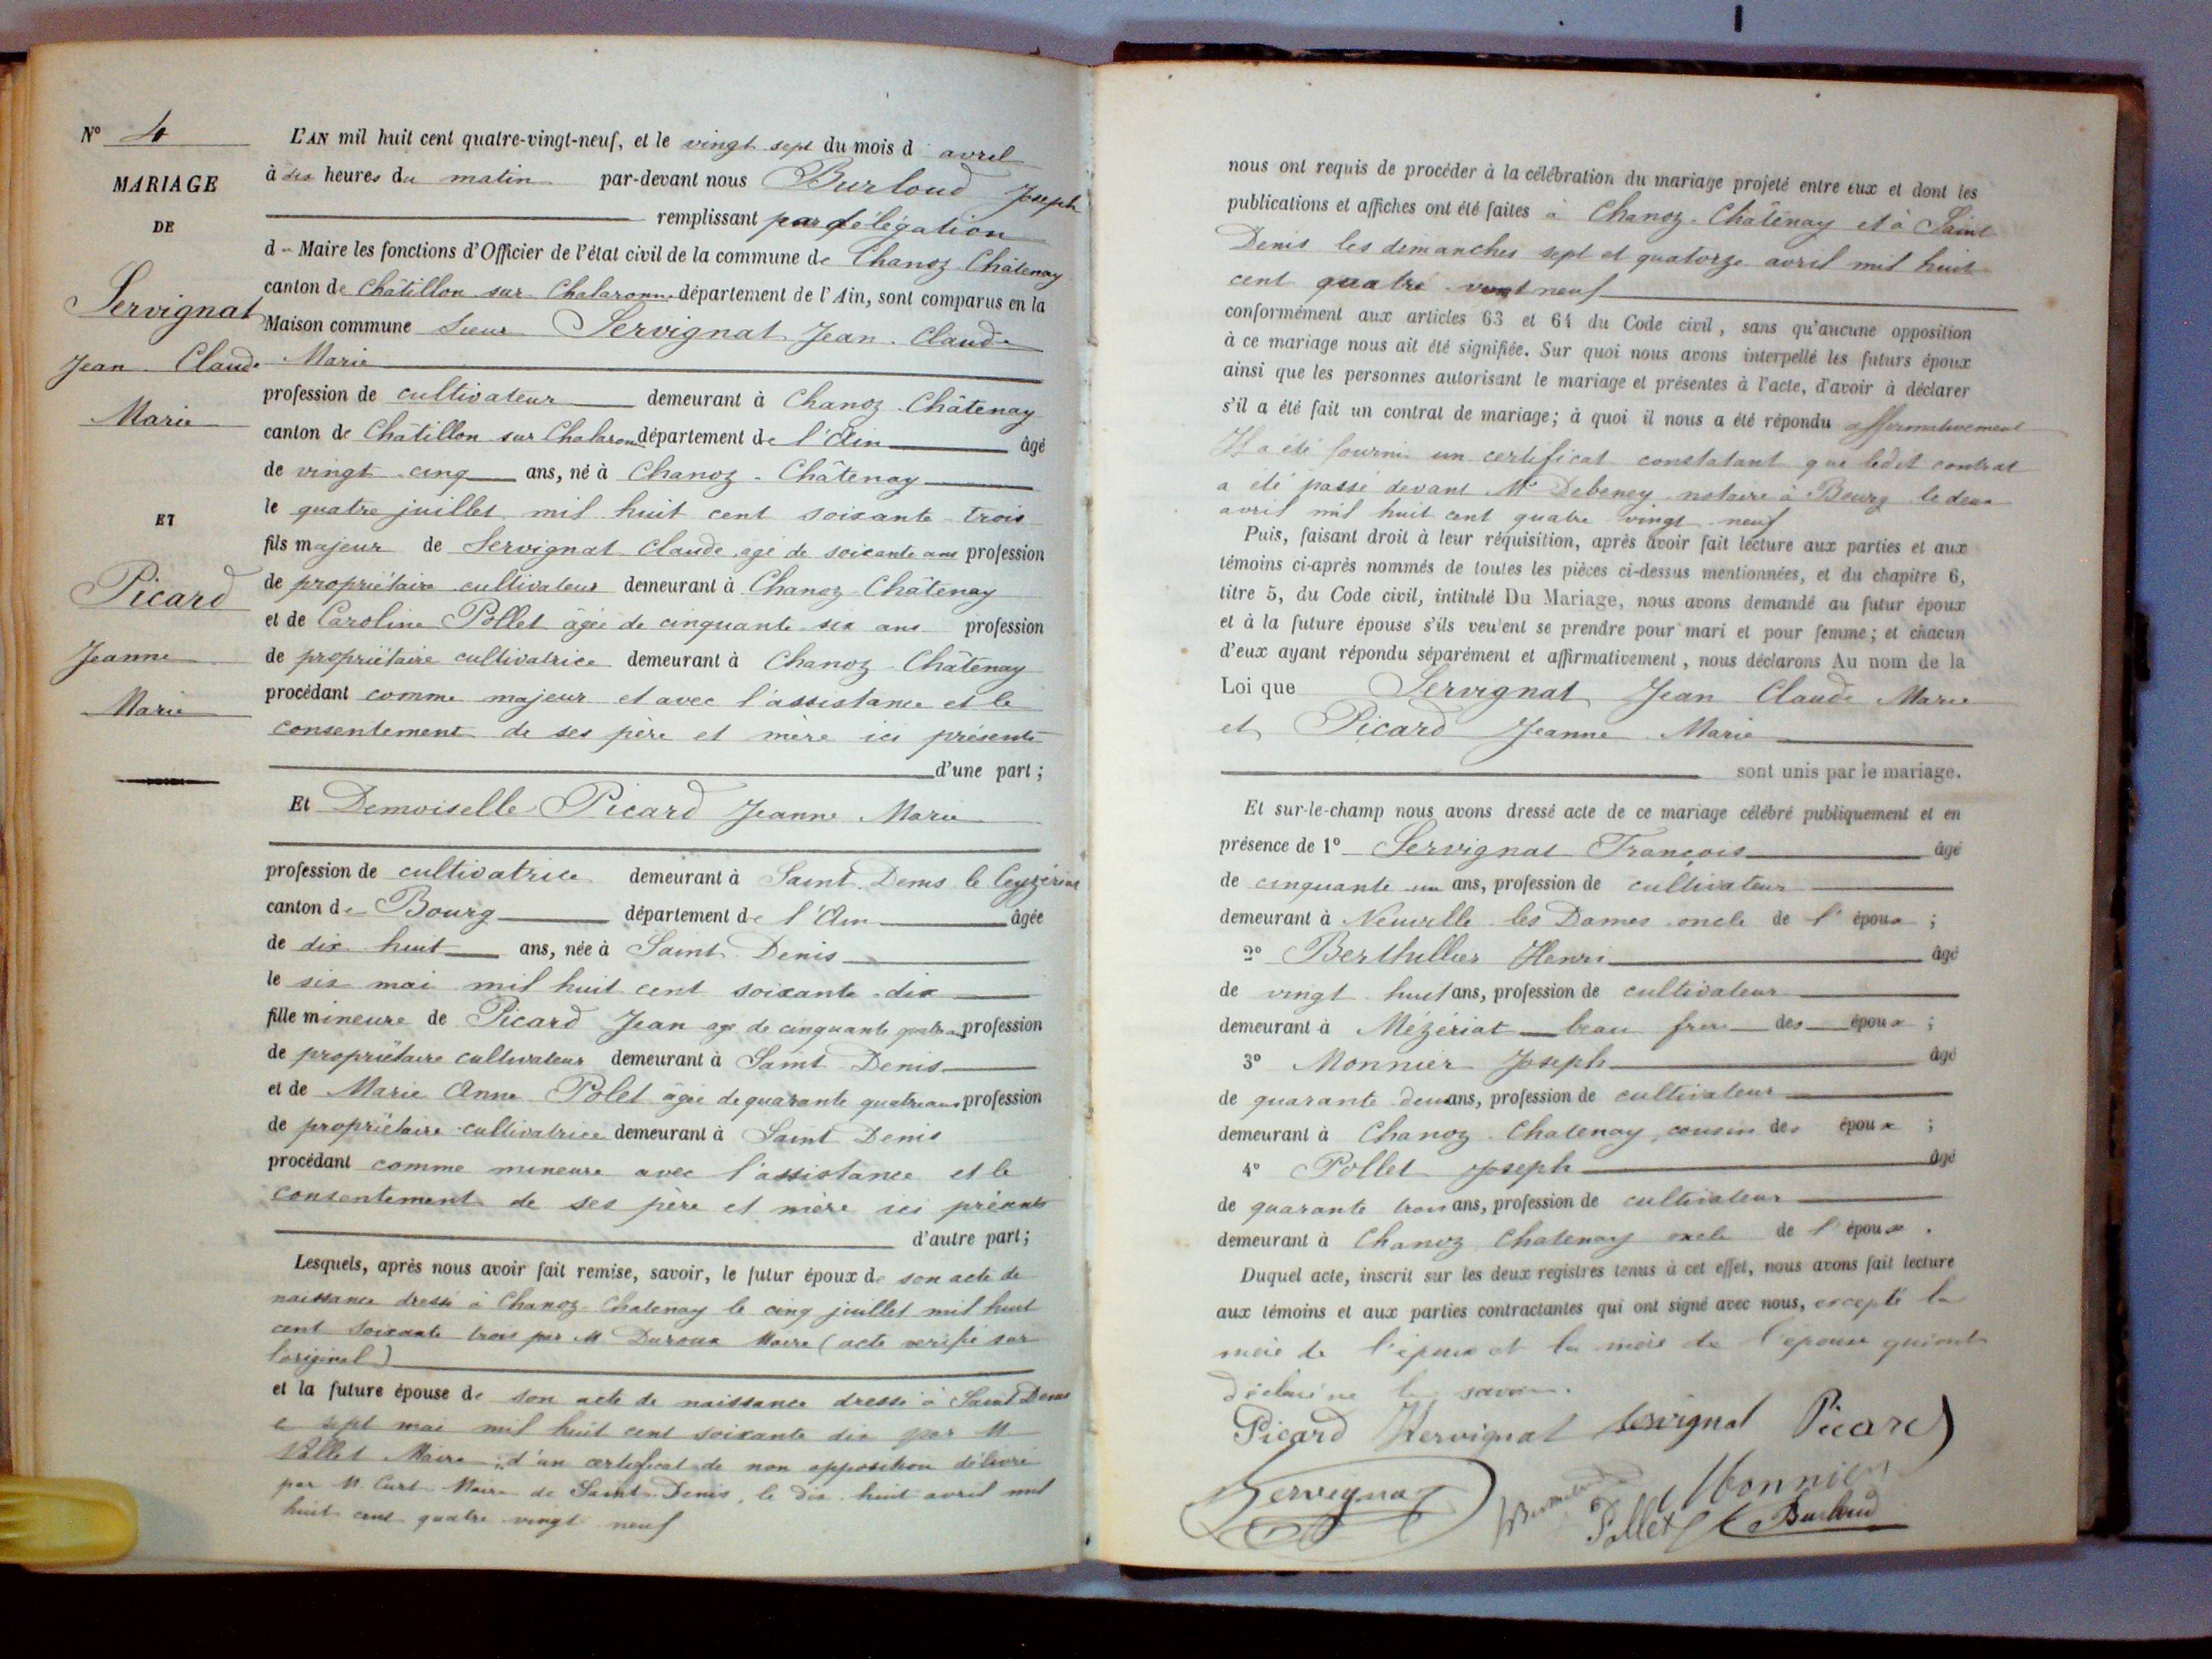 N° 4
MARIAGE
DE
Servignat
Jean Claude
Marie
ET
Picard
Jeanne
Marie
L'AN mil huit cent quatre-vingt-neuf, et le vingt sept du mois d avril
à dix heures du matin par-devant nous Burloud Joseph
remplissant par délégation
d Maire les fonctions d'Officier de l'état civil de la commune de Chanoz-Châtenay
canton de Châtillon sur Chalaronne département de l'Ain, sont comparus en la
Maison commune Sieur Servignat Jean Claude
Marie
profession de cultivateur demeurant à Chanoz-Châtenay
canton de Châtillon sur Chalaronne département de l'Ain âgé
de vingt cinq ans, né à Chanoz-Châtenay
le quatre juillet mil huit cent soixante trois
fils majeur de Servignat Claude agé de soixante ans profession
de propriétaire cultivateur demeurant à Chanoz Châtenay
et de Caroline Pollet âgée de cinquante six ans profession
de propriétaire cultivatrice demeurant à Chanoz Châtenay
procédant comme majeur et avec l'assistance et le
consentement de ses père et mère ici présents
d'une part ;
Et Demoiselle Picard Jeanne Marie
profession de cultivatrice demeurant à Saint Denis le Ceyzériat
canton de Bourg département de l'Ain âgée
de dix huit ans, née à Saint Denis
le six mai mil huit cent soixante-dix
fille mineure de Picard Jean agé de cinquante quatre ans profession
de propriétaire cultivateur demeurant à Saint Denis
et de Marie Anne Polet âgée de quarante quatre ans profession
de propriétaire cultivatrice demeurant à Saint Denis
procédant comme mineure avec l'assistance et le
consentement de ses père et mère ici présents
d'autre part ;
Lesquels, après nous avoir fait remise, savoir, le futur époux de son acte de
naissance dressé à Chanoz-Chatenay le cinq juillet mil huit
cent soixante trois par M Duroux Maire (acte vérifié sur
l'original)
et la future épouse de son acte de naissance dressé à Saint Denis
le sept mai mil huit cent soixante dix par M.
Pollet Maire ; d'un certificat de non opposition délivré
par M. Curt Maire de Saint-Denis, le dix huit avril mil
huit cent quatre vingt neuf
nous ont requis de procéder à la célébration du mariage projeté entre eux et dont les
publications et affiches ont été faites à Chanoz-Châtenay et à Saint
Denis les dimanches sept et quatorze avril mil huit
cent quatre vingt neuf
conformément aux articles 63 et 64 du Code civil, sans qu'aucune opposition
à ce mariage nous ait été signifiée. Sur quoi nous avons interpellé les futurs époux
ainsi que les personnes autorisant le mariage et présentes à l'acte, d'avoir à déclarer
s'il a été fait un contrat de mariage; à quoi il nous a été répondu affirmativement
Il a été fourni un certificat constatant que ledit contrat
a été passé devant Me Debeney notaire à Bourg le deux
avril mil huit cent quatre vingt neuf
Puis, faisant droit à leur réquisition, après avoir fait lecture aux parties et aux
témoins ci-après nommés de toutes les pièces ci-dessus mentionnées, et du chapitre 6,
titre 5, du Code civil, intitulé Du Mariage, nous avons demandé au futur époux
et à la future épouse s'ils veulent se prendre pour mari et pour femme; et chacun
d'eux ayant répondu séparément et affirmativement, nous déclarons Au nom de la
Loi que Servignat Jean Claude Marie
et Picard Jeanne Marie
sont unis par le mariage.
Et sur-le-champ nous avons dressé acte de ce mariage célébré publiquement et en
présence de 1° Servignat François âgé
de cinquante un ans, profession de cultivateur
demeurant à Neuville les Dames oncle de l'époux ;
2° Berthillier Henri âgé
de vingt huit ans, profession de cultivateur
demeurant à Mézériat beau frère des époux ;
3° Monnier Joseph âgé
de quarante deux ans, profession de cultivateur
demeurant à Chanoz Chatenay, cousin des époux ;
4° Pollet Joseph âgé
de quarante trois ans, profession de cultivateur
demeurant à Chanoz Chatenay oncle de l'époux.
Duquel acte, inscrit sur les deux registres tenus à cet effet, nous avons fait lecture
aux témoins et aux parties contractantes qui ont signé avec nous, excepté la
mère de l'époux et la mère de l'épouse qui ont
déclaré ne le savoir.
Picard Servignat Servignat Picard
Servignat Monnier
Pollet Burloud